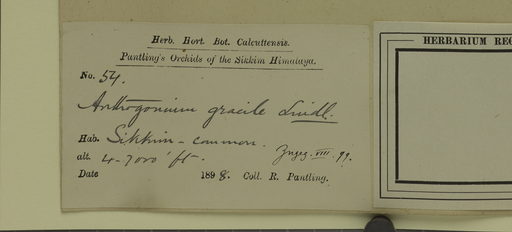 Herb. Hort. Bot. Calcuttensis.
Pantling's Orchids of the Sikkim Himalaya.
No. 54.
Arthogonium gracile Lindl.
Hab. Sikkim - common.
alt. 4-7000 ft.
VIII. 99.
Date 1898. Coll. R. Pantling.
HERBARIUM REG